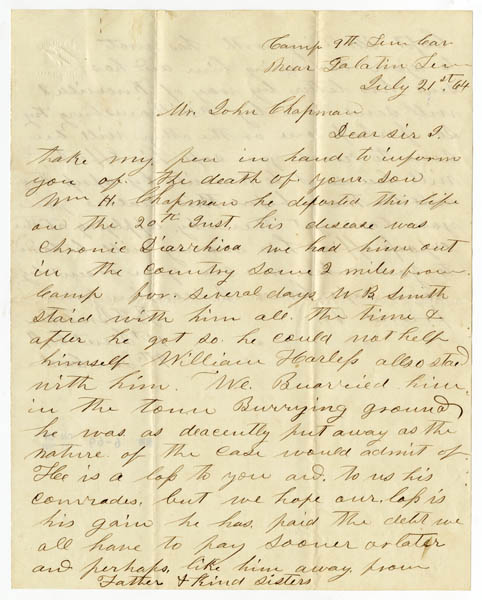 Camp 9th Tenn Cav
Near Galatin Tenn
July 21st, 64
Mr. John Chapman
Dear sir I.
thake my pen in hand to inform
you of the death of your son
Wm H. Chapman he deported this life
on the 20th Inst, his disease was
Chronic Diarrhioa we had him out
in the country some 2 miles from
Camp for several days W. B. Smith
staid with him all the time &
after he got so he could not help
himself William Harless allso staid
with him. We Buarried him
in the town Burrying ground
he was as deacently put away as the
nature of the case would admit of
He is a loss to you and to us his
comrades, but we hope our loss is
his gain he has paid the debt we
all have to pay sooner or later
and perhaps like him away from
Father & kind sisters